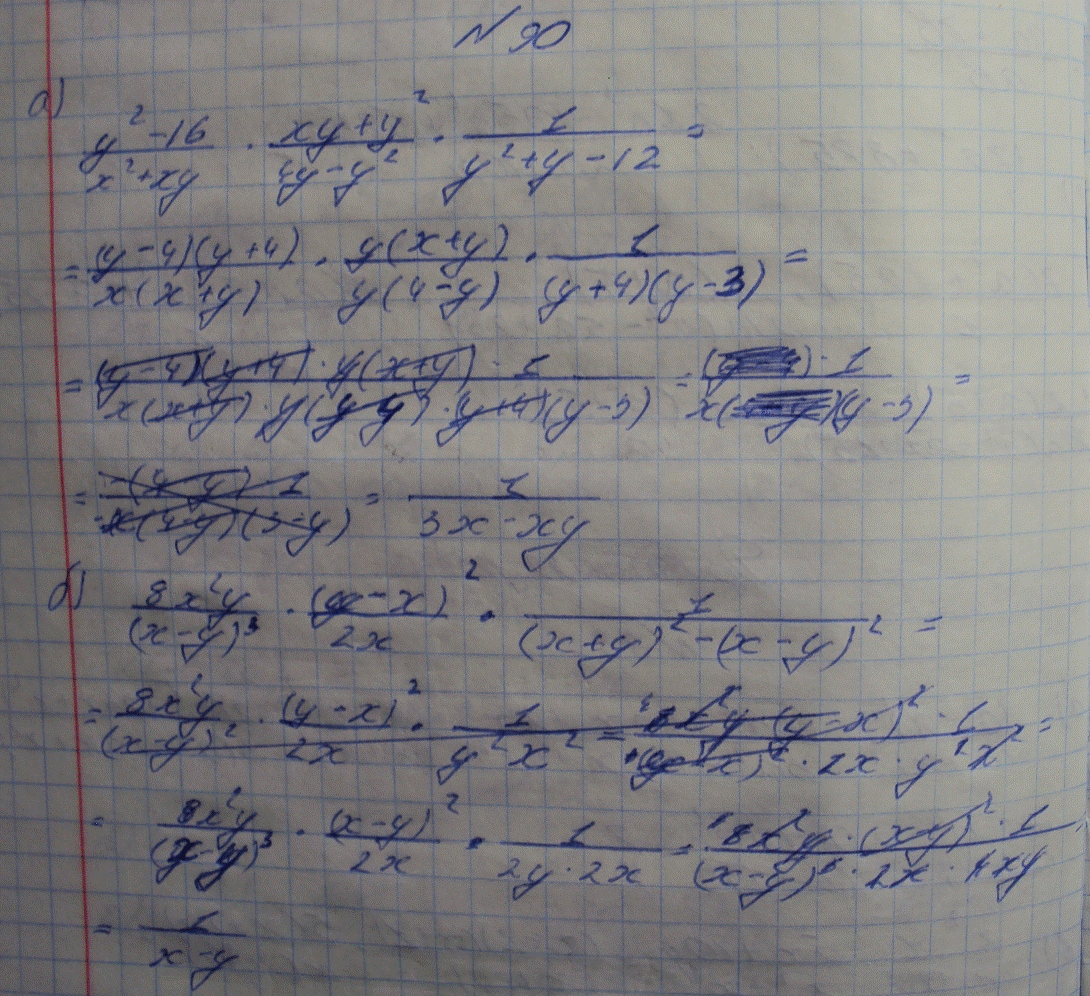 № 90
а) (y² - 16)/(x² + xy) · (xy + y²)/(4y - y²) · 1/(y² + y - 12) =
= (y - 4)(y + 4)/x(x + y) · y(x + y)/y(4 - y) · 1/(y + 4)(y - 3) =
= (y - 4)(y + 4) · y(x + y) · 1/x(x + y) · y(4 - y) · (y + 4)(y - 3) = · 1/x(y - 3) =
= = 1/(3x - xy)
б) 8x²y/(x - y)³ · (y - x)²/2x · 1/((x + y)² - (x - y)²) =
= 8x²y/(x - y)² · (y - x)²/2x · 1/y²x² = 8x²y (y - x)² · 1/(y - x)² · 2x · y²x² =
= 8x²y/(x - y)³ · (x - y)²/2x · 1/2y · 2x = 8x²y · (x - y)² · 1/(x - y)³ · 2x · 4xy
= 1/(x - y)